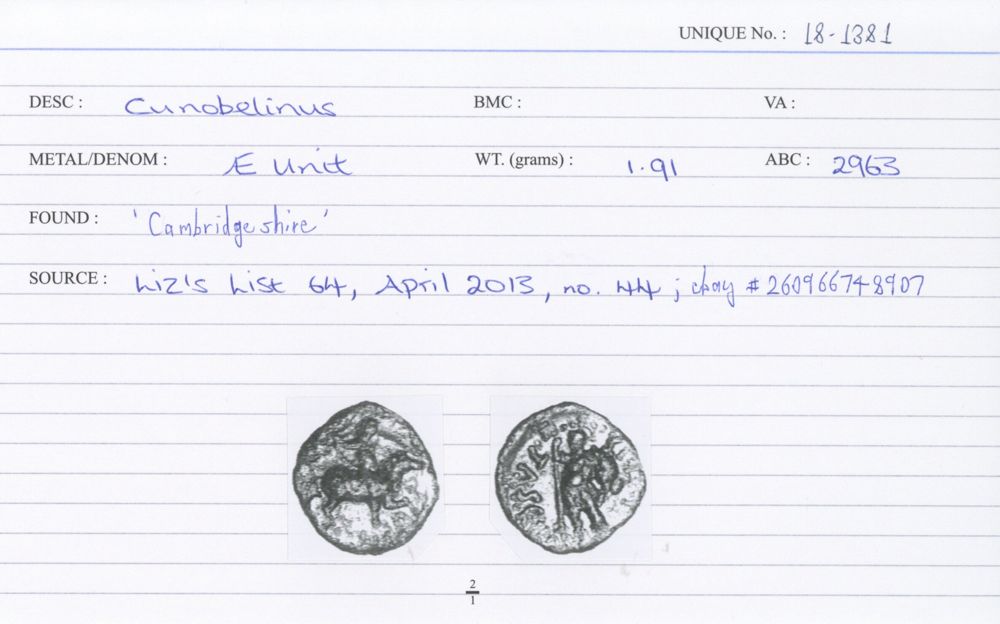 UNIQUE No. : 18-1381
DESC : Cunobelinus BMC : VA :
METAL/DENOM : Æ Unit WT. (grams) : 1.91 ABC : 2963
FOUND : 'Cambridgeshire'
SOURCE : Liz's List 64, April 2013, no. 44 ; ebay # 260966748907
2
1